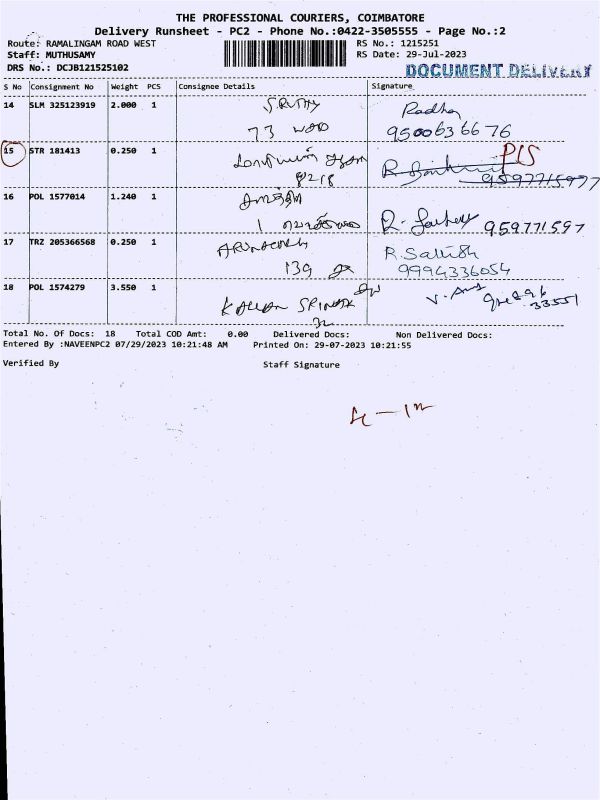 THE PROFESSIONAL COURIERS, COIMBATORE
Delivery Runsheet - PC2 - Phone No.:0422-3505555 - Page No.:2
Route: RAMALINGAM ROAD WEST RS No.: 1215251
Staff: MUTHUSAMY RS Date: 29-Jul-2023
DRS No.: DCJB121525102 DOCUMENT DELIVERY
S No Consignment No Weight PCS Consignee Details Signature
14 SLM 325123919 2.000 1 Radha
73 9500636676
15 STR 181413 0.250 1 PIS
8218 9597715977
16 POL 1577014 1.240 1
1 959771597
17 TRZ 205366568 0.250 1 R. Satish
139 9994336054
18 POL 1574279 3.550 1
32
Total No. Of Docs: 18 Total COD Amt: 0.00 Delivered Docs: Non Delivered Docs:
Entered By :NAVEENPC2 07/29/2023 10:21:48 AM Printed On: 29-07-2023 10:21:55
Verified By Staff Signature